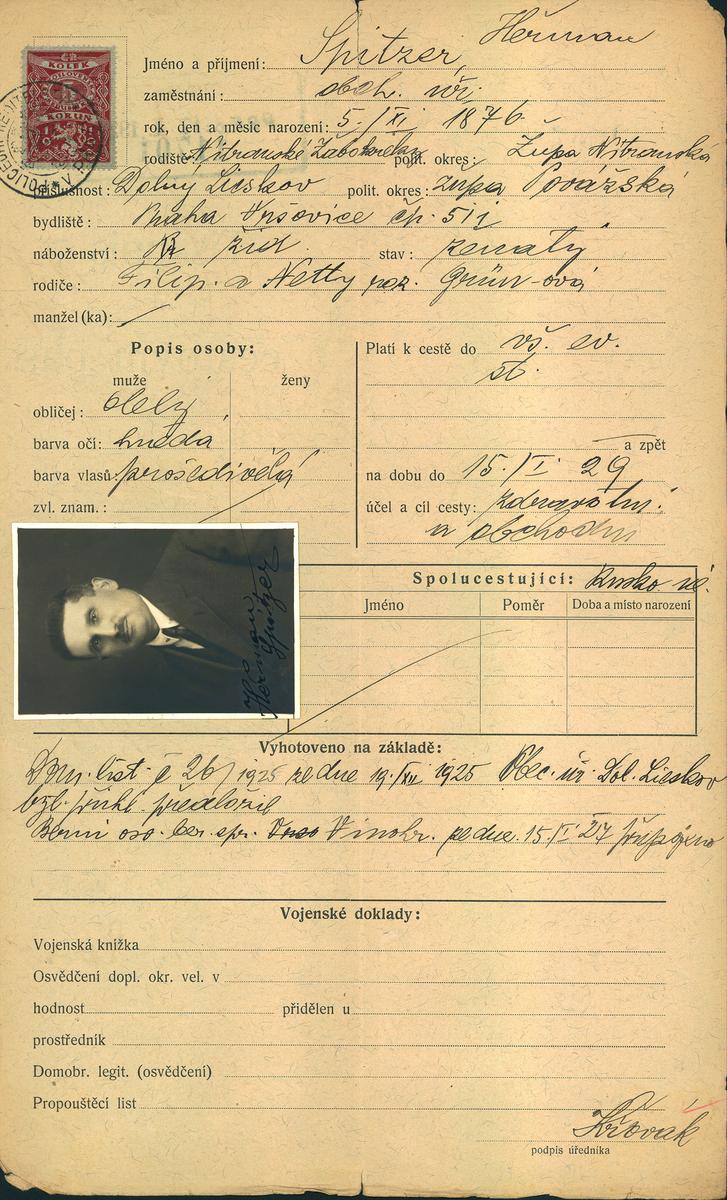 KOLEK
KORUN
Jméno a příjmení: Spitzer, Heřman
zaměstnání: obch. úř.
rok, den a měsíc narození: 5./XI. 1876.
rodiště Nitranské Žabokreky polit. okres: župa Nitranská
příslušnost: Dolny Lieskov polit. okres: župa Povážská
bydliště: Praha Vršovice čp. 511
náboženství: žid. stav: ženatý
rodiče: Filip. a Netty roz. Grün-ová
manžel(ka):
Popis osoby:
muže ženy
obličej: celý
barva očí: hnědá
barva vlasů: prošedivělá
zvl. znam.:
Platí k cestě do vš. ev.
st.
a zpět
na dobu do 15./I. 29
účel a cíl cesty: zdravotní
a obchodní
Heřman
Spitzer
Spolucestující: Rusko ne.
Jméno Poměr Doba a místo narození
Vyhotoveno na základě:
Dom. list č 26/1925 ze dne 19./XII 1925 Obec. úř. Dol. Lieskov
předložil
Berní ber. spr. Vinohr. ze dne 15/I 27
Vojenské doklady:
Vojenská knížka
Osvědčení dopl. okr. vel. v
hodnost přidělen u
prostředník
Domobr. legit. (osvědčení)
Propouštěcí list
podpis úředníka